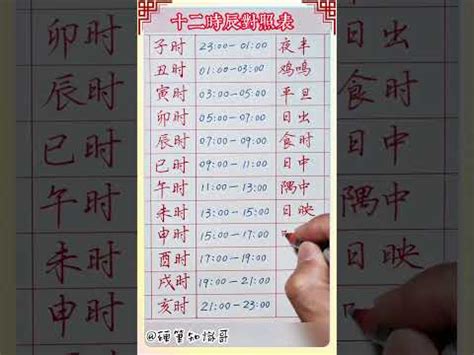 十二時辰對照表
子时 23:00-01:00 夜半
丑时 01:00-03:00 鸡鸣
寅时 03:00-05:00 平旦
卯时 05:00-07:00 日出
辰时 07:00-09:00 食时
巳时 09:00-11:00 日中
午时 11:00-13:00 隅中
未时 13:00-15:00 日映
申时 15:00-17:00
酉时 17:00-19:00
戌时 19:00-21:00
亥时 21:00-23:00
@硬笔知识哥
卯时
辰时
巳时
午时
未时
申时
日出
食时
日中
隅中
日映